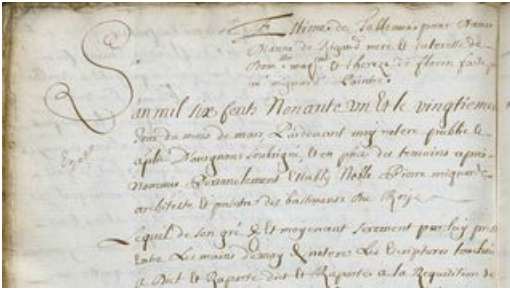 Estime de Tableaux pour Dame
Dianne de
mere et
de
Dam.lles et Therese de fait p
Mignard Peintre
L'an mil six cents Nonante Un Et le vingtieme
Jour du mois de mars Pardevant moy notere publiq e
aplic D'avignon soubzigné, et en pnce des temoins apres
Nommes Personnelement Estably Noble Pierre mignard
architecte Et peintre des bastiments du Roy
Lequel de son gré Et moyenant serement par luy pres
Entre Les mains de moy notere Les Escriptures touchées
a Dict Et Raporté dict Et Raporte a la Requisition de